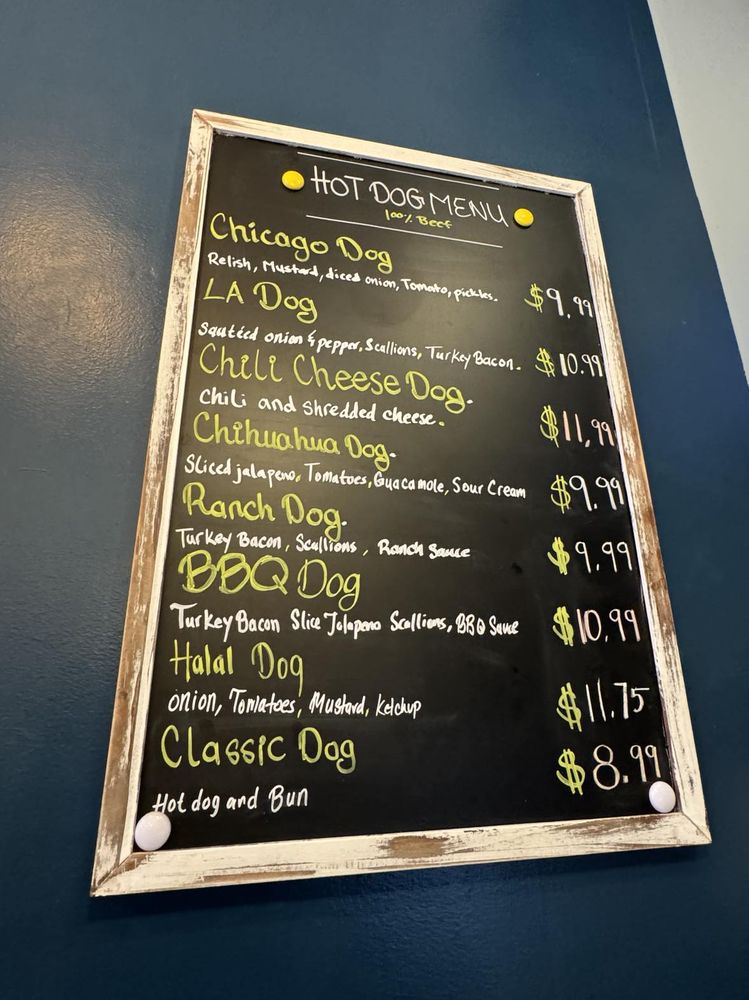 HOT DOG MENU
100% Beef
Chicago Dog
Relish, Mustard, diced onion, Tomato, pickles. $9.99
LA Dog
Sautéed onion & pepper, Scallions, Turkey Bacon. $10.99
Chili Cheese Dog.
Chili and shredded cheese. $11,99
Chihuahua Dog.
Sliced jalapeno, Tomatoes, Guacamole, Sour Cream $9.99
Ranch Dog.
Turkey Bacon, Scallions, Ranch Sauce $9.99
BBQ Dog
Turkey Bacon Slice Jalapeno Scallions, BBQ Sauce $10.99
Halal Dog
onion, Tomatoes, Mustard, Ketchup $11.75
Classic Dog $8.99
Hot dog and Bun